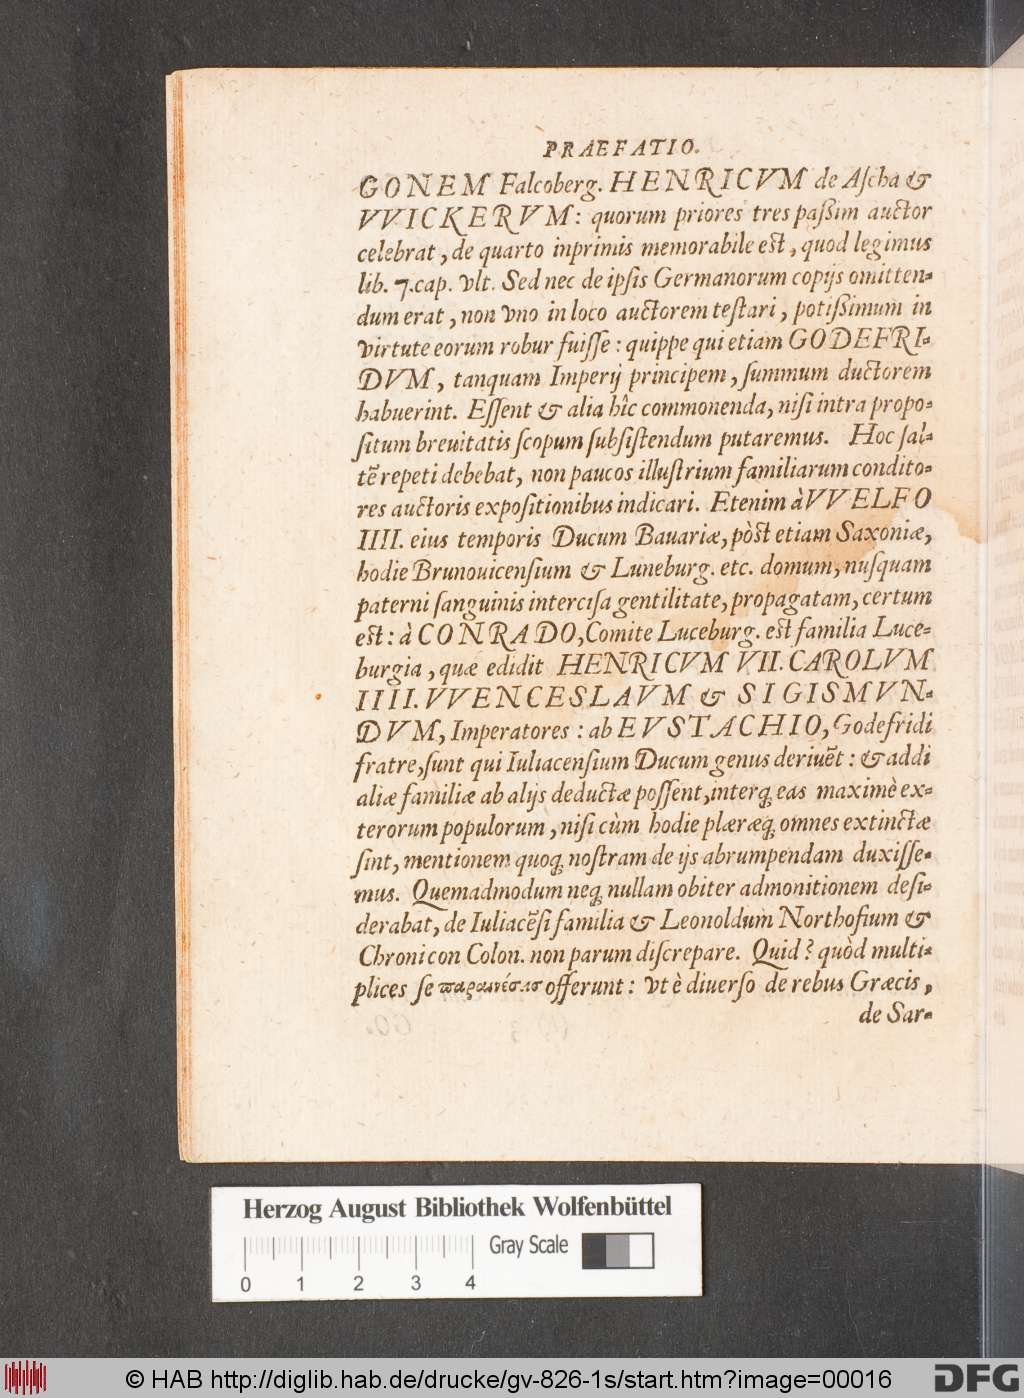 PRAEFATIO.
GONEM Falcoberg. HENRICVM de Aſcha &
VVICKERVM: quorum priores tres paßim auctor
celebrat, de quarto inprimis memorabile est, quod legimus
lib. 7. cap. vlt. Sed nec de ipſis Germanorum copijs omitten-
dum erat, non vno in loco auctorem teſtari, potißimum in
virtute eorum robur fuiſſe: quippe qui etiam GODEFRI-
DVM, tanquam Imperij principem, ſummum ductorem
habuerint. Eſſent & alia hîc commonenda, niſi intra propo-
ſitum breuitatis ſcopum ſubſiſtendum putaremus. Hoc ſal-
tē repeti debebat, non paucos illuſtrium familiarum condito-
res auctoris expoſitionibus indicari. Etenim à VVELFO
IIII. eius temporis Ducum Bauariæ, pòst etiam Saxoniæ,
hodie Brunouicenſium & Luneburg. etc. domum, nuſquam
paterni ſanguinis interciſa gentilitate, propagatam, certum
est: à CONRADO, Comite Luceburg. est familia Luce-
burgia, quæ edidit HENRICVM VII. CAROLVM
IIII. VVENCESLAVM & SIGISMVN-
DVM, Imperatores: ab EVSTACHIO, Godefridi
fratre, ſunt qui Iuliacenſium Ducum genus deriuēt: & addi
aliæ familiæ ab alijs deductæ poſſent, interq́ eas maximè ex-
terorum populorum, niſi cùm hodie plæræq́ omnes extinctæ
ſint, mentionem quoq́ noſtram de ijs abrumpendam duxiſſe-
mus. Quemadmodum neq́ nullam obiter admonitionem deſi-
derabat, de Iuliacēſi familia & Leonoldum Northofium &
Chronicon Colon. non parum diſcrepare. Quid? quòd multi-
plices ſe παραινέσεις offerunt: vt è diuerſo de rebus Græcis,
de Sar-
Herzog August Bibliothek Wolfenbüttel
Gray Scale
0 1 2 3 4
© HAB http://diglib.hab.de/drucke/gv-826-1s/start.htm?image=00016
DFG